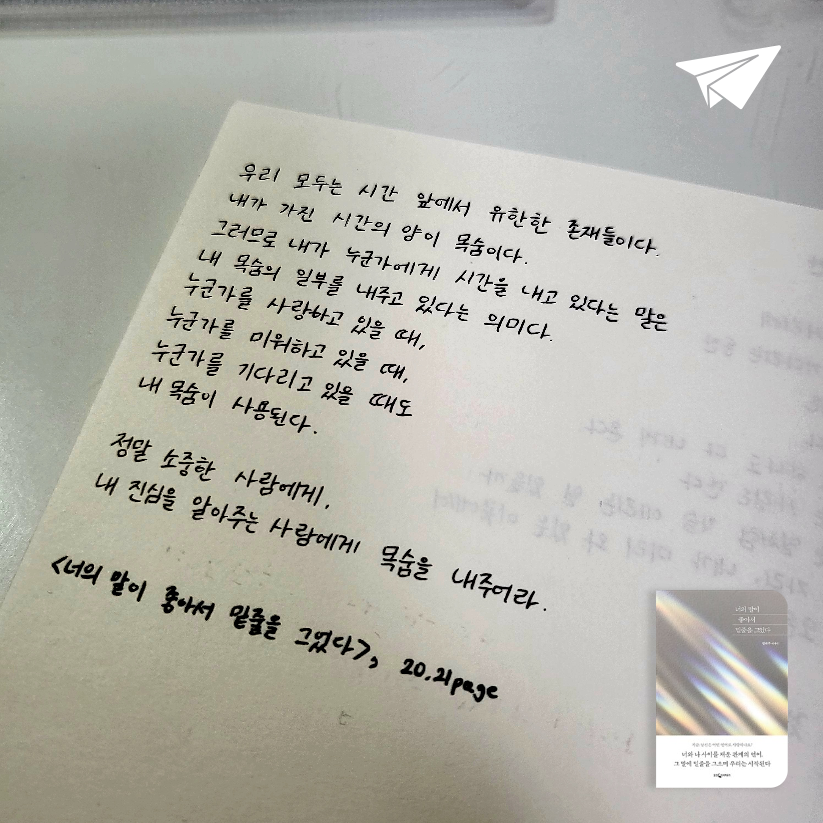 우리 모두는 시간 앞에서 유한한 존재들이다.
내가 가진 시간의 양이 목숨이다.
그러므로 내가 누군가에게 시간을 내고 있다는 말은
내 목숨의 일부를 내주고 있다는 의미다.
누군가를 사랑하고 있을 때,
누군가를 미워하고 있을 때,
누군가를 기다리고 있을 때도
내 목숨이 사용된다.
정말 소중한 사람에게,
내 진심을 알아주는 사람에게 목숨을 내주어라.
<너의 말이 좋아서 밑줄을 그었다>, 20.21page
너의 말이
좋아서
밑줄을 그었다
너와 나 사이를 채운 관계의 언어,
그 말에 밑줄을 그으며 우리는 시작된다